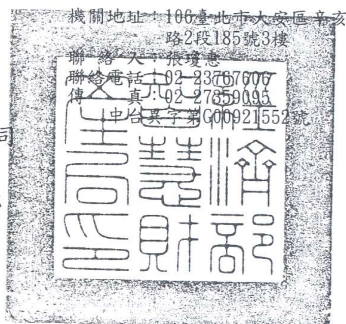 機關地址：106臺北市大安區辛亥
路2段185號3樓
聯 絡 人：張瓊惠
聯絡電話：02-23767606
傳 真：02-27359095
中台異字第G00921552號
司
經濟部
智慧財
產局印